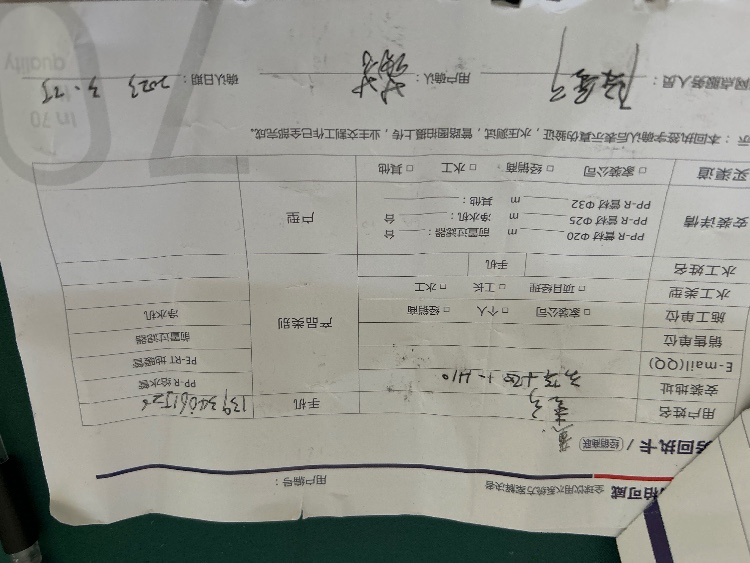 柏可威 全球饮用水系统方案解决者 用户编号：
务回执卡 / 经销商联
用户姓名 手机 13934061526
安装地址 产品类别 PP-R 给水管
E-mail(QQ) PE-RT 地暖管
销售单位 前置过滤器
施工单位 □ 家装公司 □ 个人 □ 经销商 净水机
水工类型 □ 项目经理 □ 工长 □ 水工
水工姓名 手机
安装详情 PP-R 管材 Φ20 m 前置过滤器： 台 户型
PP-R 管材 Φ25 m 净水机： 台
PP-R 管材 Φ32 m 其他：
买渠道 □ 家装公司 □ 经销商 □ 水工 □ 其他
示：本回执签字确认后表示真伪验证，水压测试，管路图拍照上传，业主交割工作已全部完成。
网点服务人员： 用户确认： 确认日期：2023 3.25
70
In 70
quality